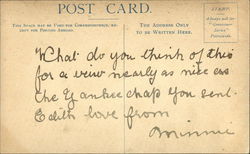 POST CARD.
THIS SPACE MAY BE USED FOR CORRESPONDENCE,
THE ADDRESS ONLY
TO BE WRITTEN HERE.
What do you think of this
for a veiw nearly as nice as
the Yankee chap you sent.
Edith love from
Minnie